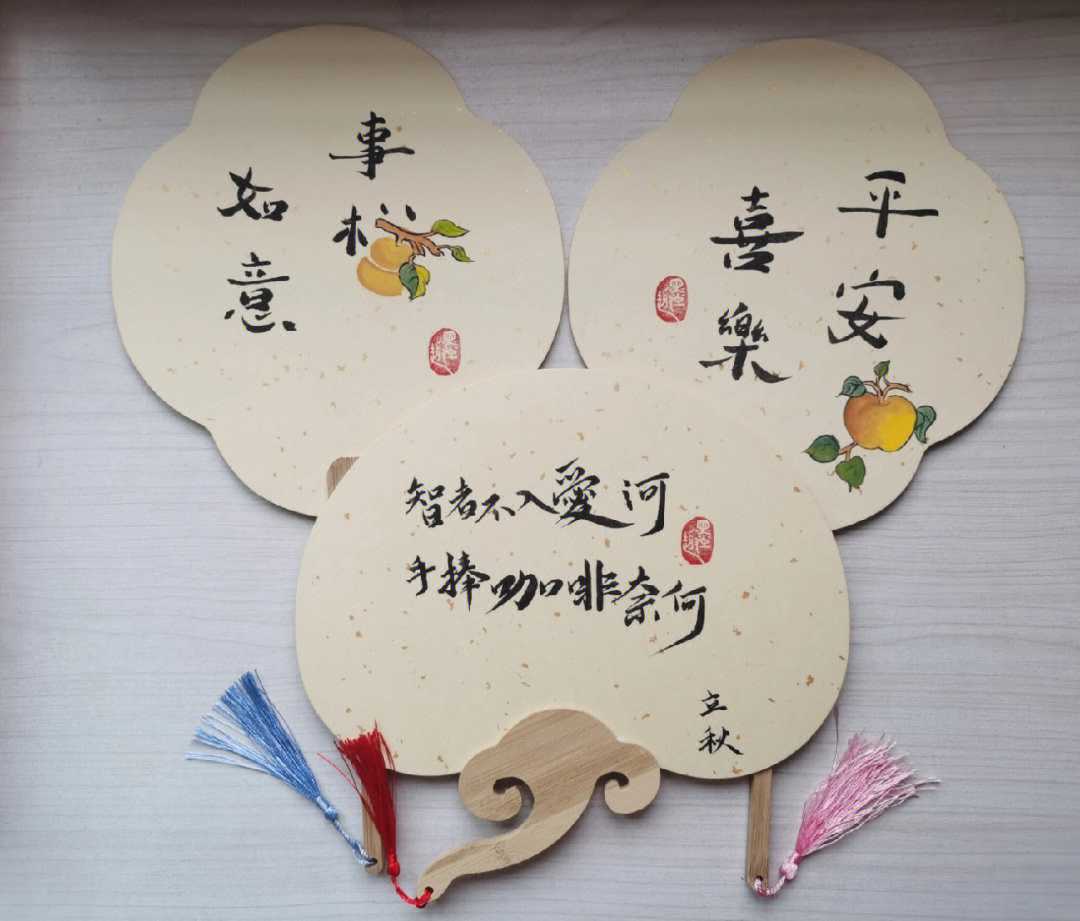 事
如意
平安
喜樂
智者不入愛河
手捧咖啡奈何
立秋